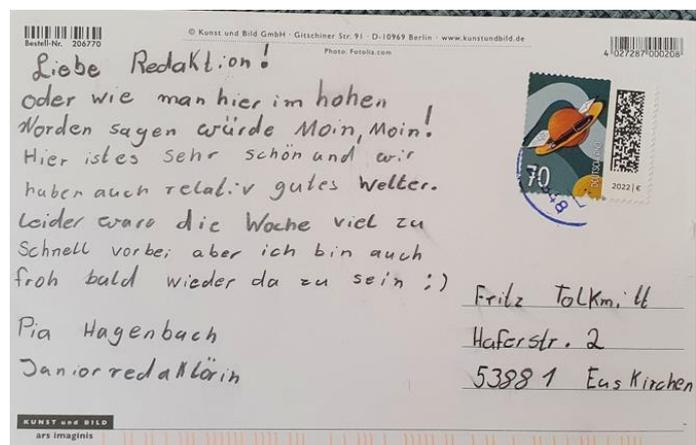 Bestell-Nr. 206770
© Kunst und Bild GmbH · Gitschiner Str. 91 · D-10969 Berlin · www.kunstundbild.de
Photo: Fotolia.com
4 027287 000208
Liebe Redaktion!
oder wie man hier im hohen
Norden sagen würde Moin, Moin!
Hier ist es sehr schön und wir
haben auch relativ gutes Wetter.
Leider ware die Woche viel zu
Schnell vorbei aber ich bin auch
froh bald wieder da zu sein :)
Pia Hagenbach
Juniorredaktörin
70
DEUTSCHLAND
2022 | €
Fritz Tolkmitt
Haferstr. 2
53881 Euskirchen
KUNST und BILD
ars imaginis